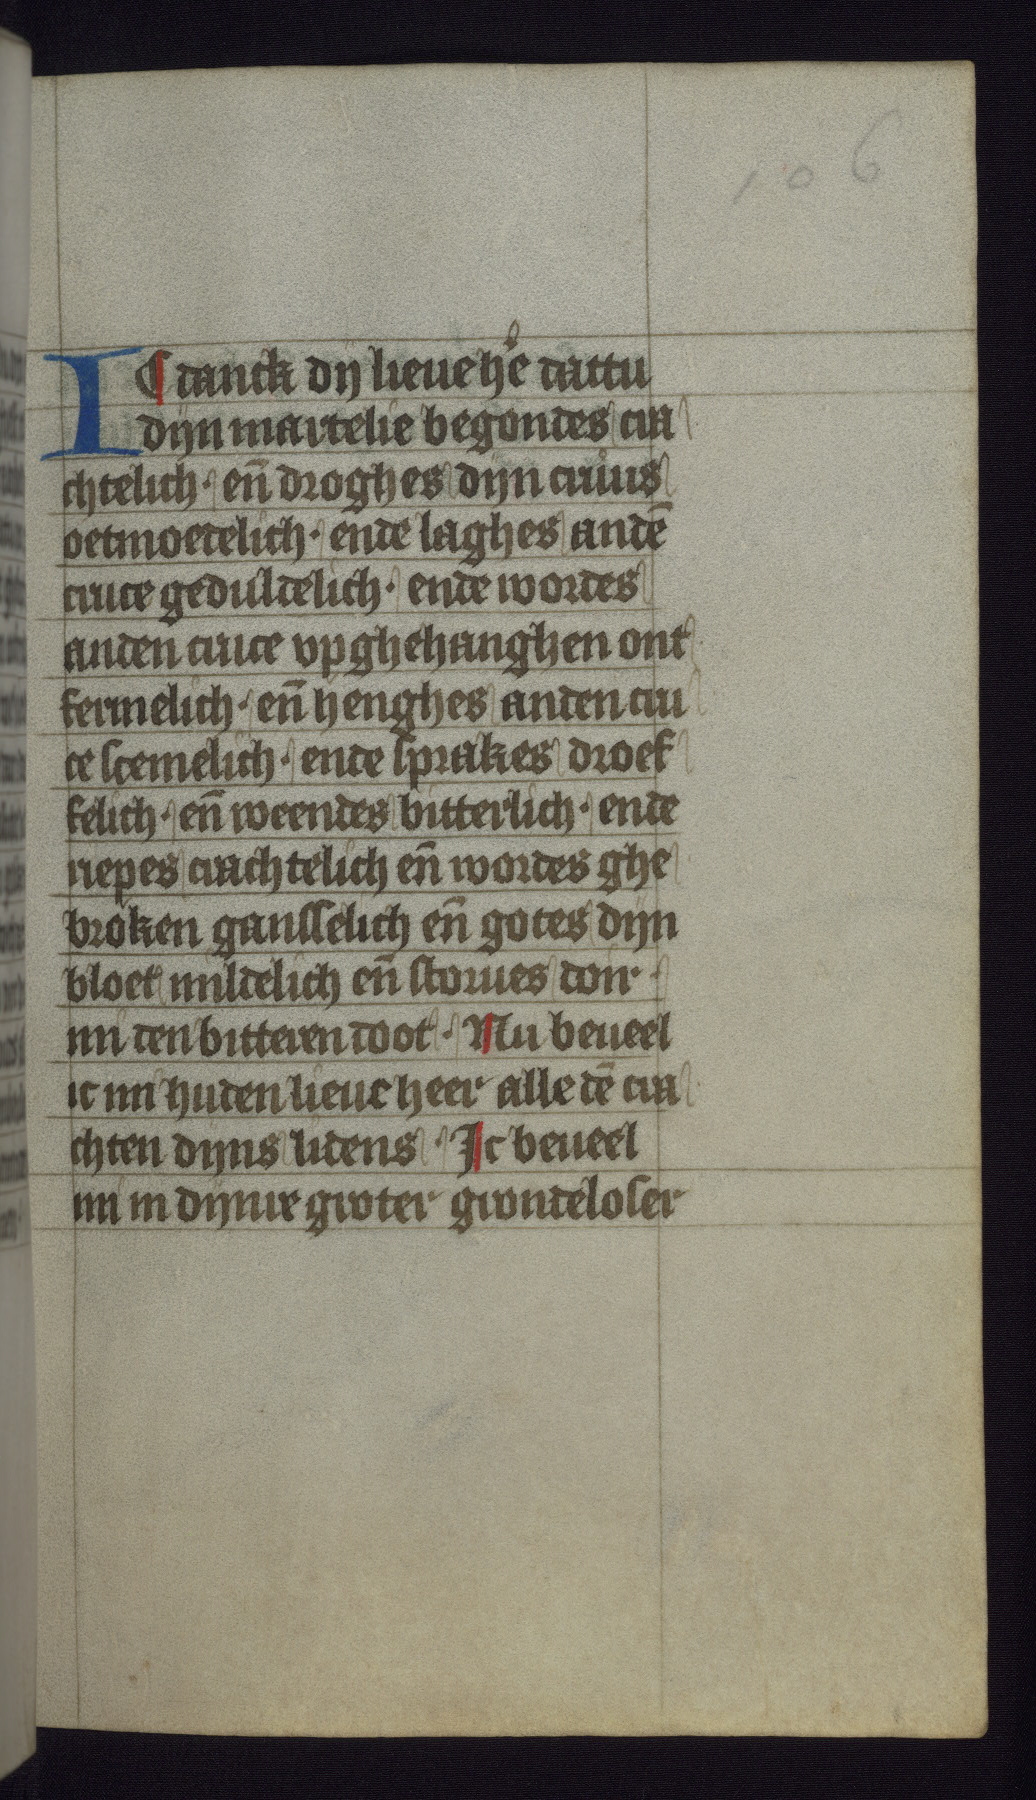 106
IC danck dy lieue he dattu
dijn martelie begondes cra
chtelich· en̄ droghes dijn cruus
oetmoedelich· ende laghes andē
cruce geduldelich· ende wordes
anden cruce vpghehanghen ont
fermelich· en̄ henghes anden cru
ce scemelich· ende sprakes droef
felich· en̄ weendes bitterlich· ende
riepes crachtelich en̄ wordes ghe
broken gansselich en̄ gotes dijn
bloet mildelich en̄ storues doir·
mi den bitteren doot· Nu beueel
ic mi huden lieue heer alle dē cra
chten dijns lidens· Jc beueel
mi in dijnre groter grondeloser